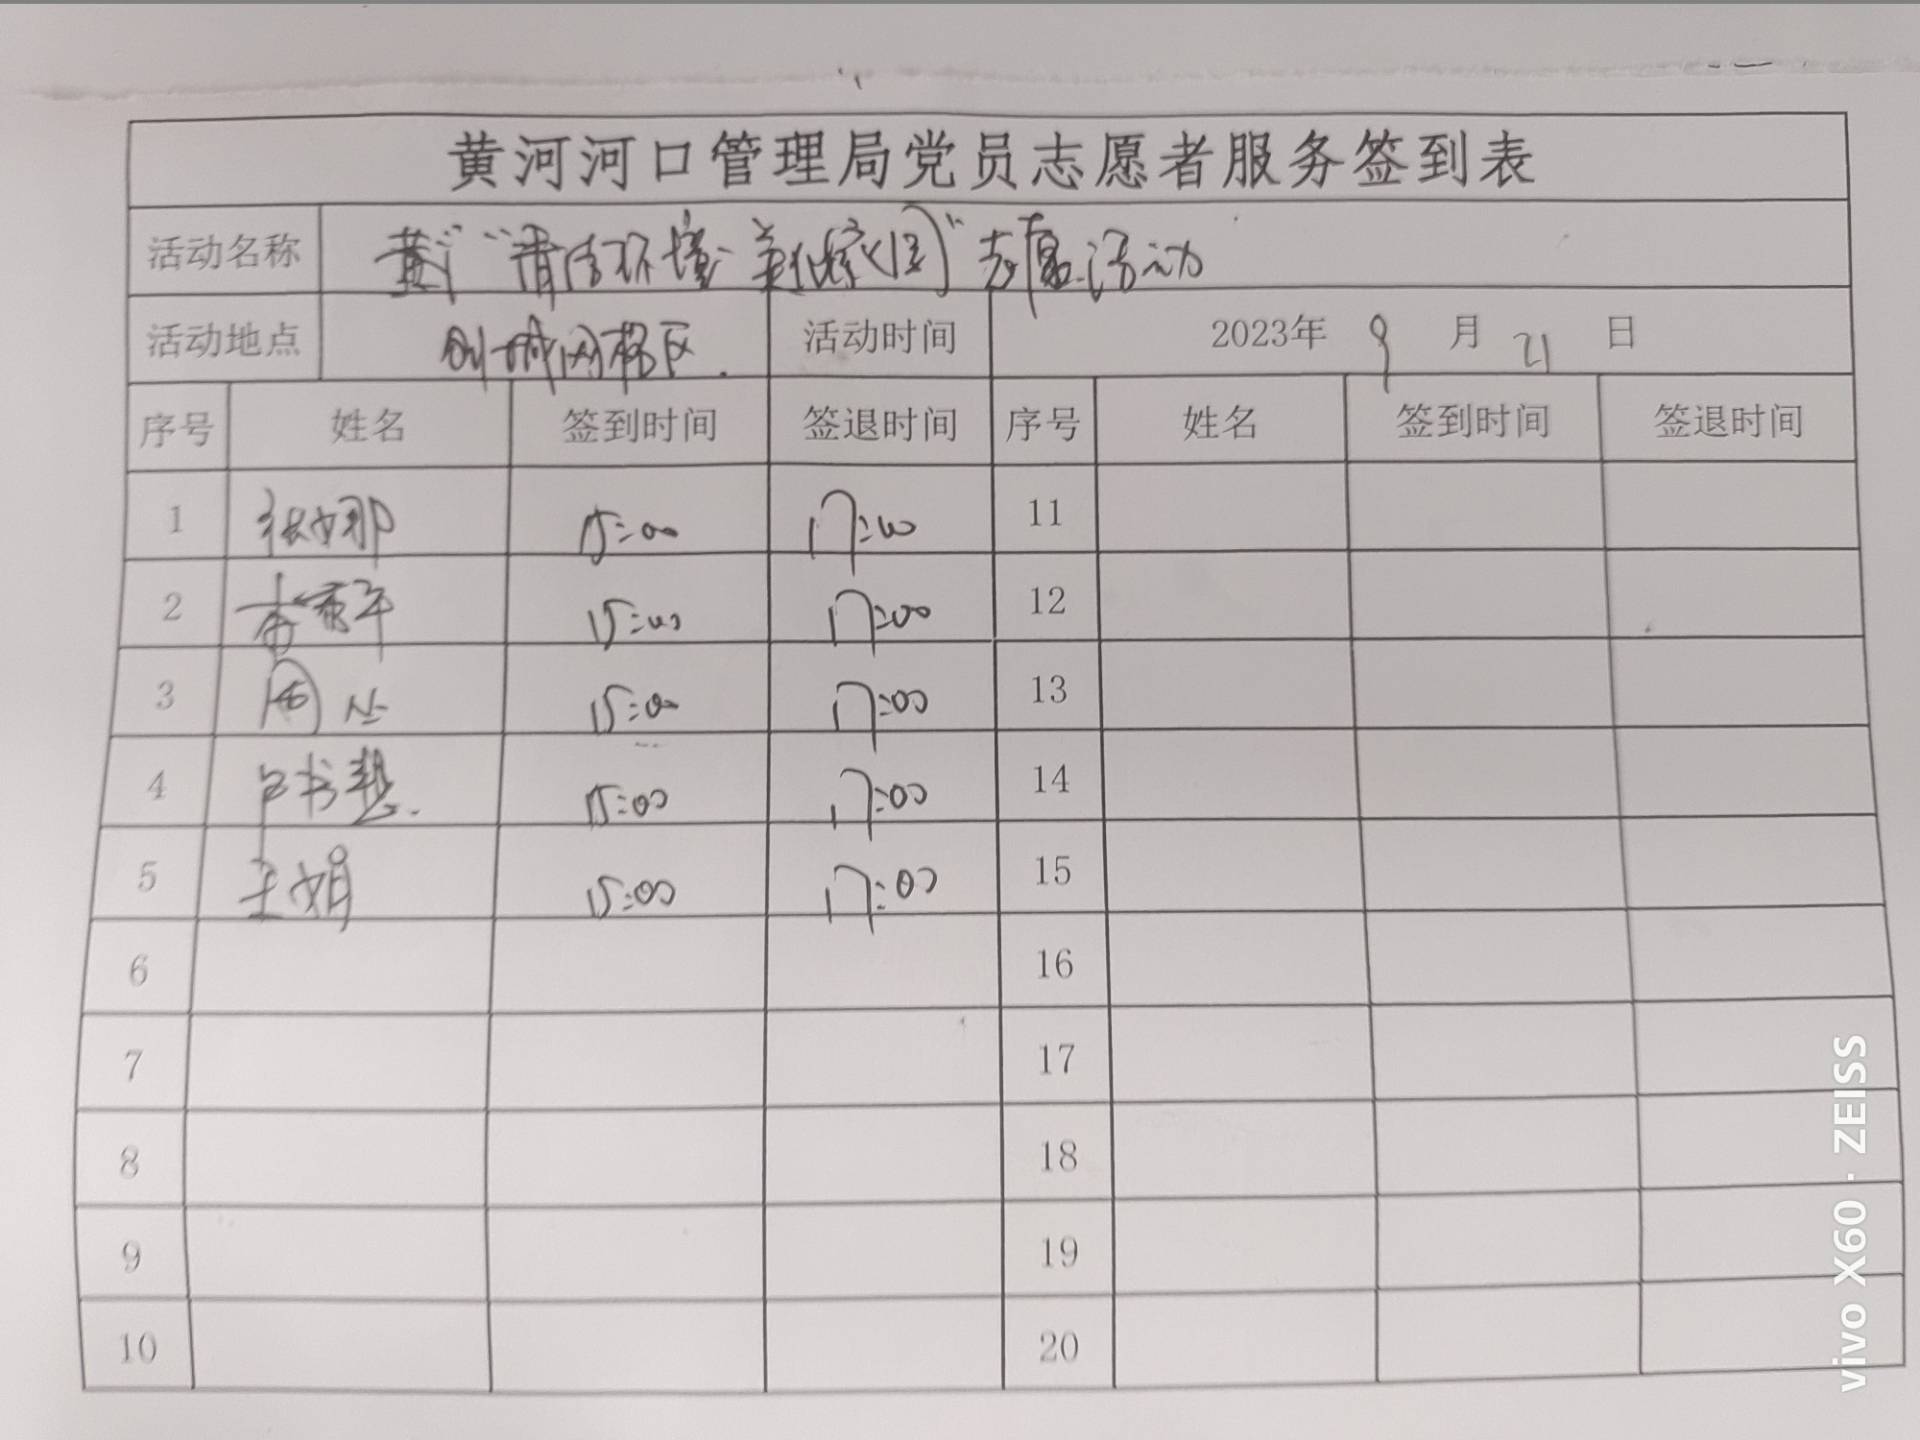 黄河河口管理局党员志愿者服务签到表
活动名称 "清洁环境 美化家园"志愿活动
活动地点 创城网格区 活动时间 2023年 9 月 21 日
序号 姓名 签到时间 签退时间 序号 姓名 签到时间 签退时间
1 张娜 15:00 17:00 11
2 15:00 17:00 12
3 周 15:00 17:00 13
4 15:00 17:00 14
5 王娟 15:00 17:00 15
6 16
7 17
8 18
9 19
10 20
vivo X60 · ZEISS